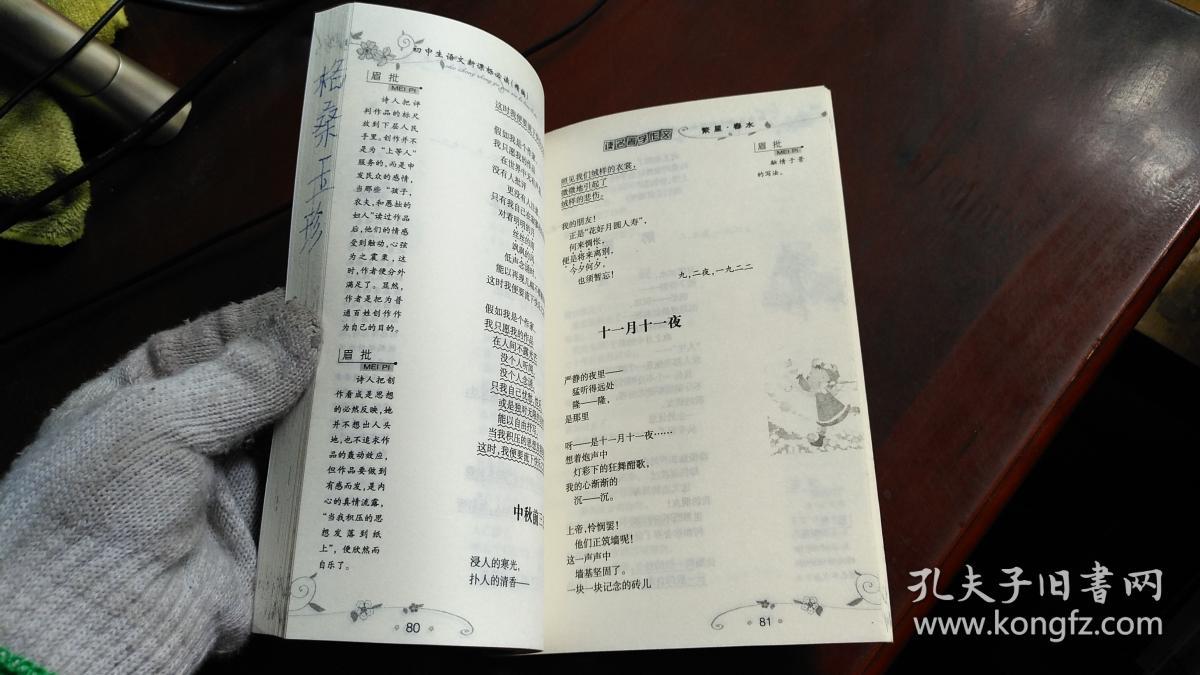 格桑玉珍
初中生语文新课标必读(精编)
眉 批
MEI PI
诗人把评
判作品的标尺
放到下层人民
手里。创作并不
是为“上等人”
服务的,而是中
发民众的感情,
当那些“孩子,
农夫,和愚拙的
妇人”读过作品
后,他们的情感
受到触动,心弦
为之震来,这
时,作者便分外
满足了。显然,
作者是把为普
通百姓创作作
为自己的目的。
眉 批
MEI PI
诗人把创
作看成是思想
的必然反映,她
并不想出人头
地,也不追求作
品的轰动效应,
但作品要做到
有感而发,是内
心的真情流露,
“当我积压的思
想发落到纸
上”,便欣然而
自乐了。
这时我便要流下
假如我是个作家,
我只愿我的作品
在世界中无有
没有人批评
更没有人
只有我自己在
对着明明的月
丝丝的雨
飒飒的风
低声念诵时,
能以再现几幅不
这时我便要流下快乐
假如我是个作家,
我只愿我的作品
在人间不露光芒
没个人听闻
没个人念诵
只我自己忧愁,快乐
或是独对无限的
能以自由抒写
当我积压的思想发落
这时,我便要流下快乐
中秋前三
浸人的寒光,
扑人的清香—
80
读名著学作文
繁星·春水
眉 批
MEI PI
融情于景
的写法。
照见我们绒样的衣裳,
微微地引起了
绒样的悲伤。
我的朋友!
正是“花好月圆人寿”,
何来惆怅,
便是将来离别,
今夕何夕,
也须暂忘!
九,二夜,一九二二
十一月十一夜
严静的夜里——
猛听得远处
隆——隆,
是那里
呀——是十一月十一夜……
想着炮声中
灯彩下的狂舞酣歌,
我的心渐渐的
沉——沉。
上帝,怜悯罢!
他们正筑墙呢!
这一声声中
墙基坚固了。
一块一块记念的砖儿
81
孔夫子旧書网
www.kongfz.com